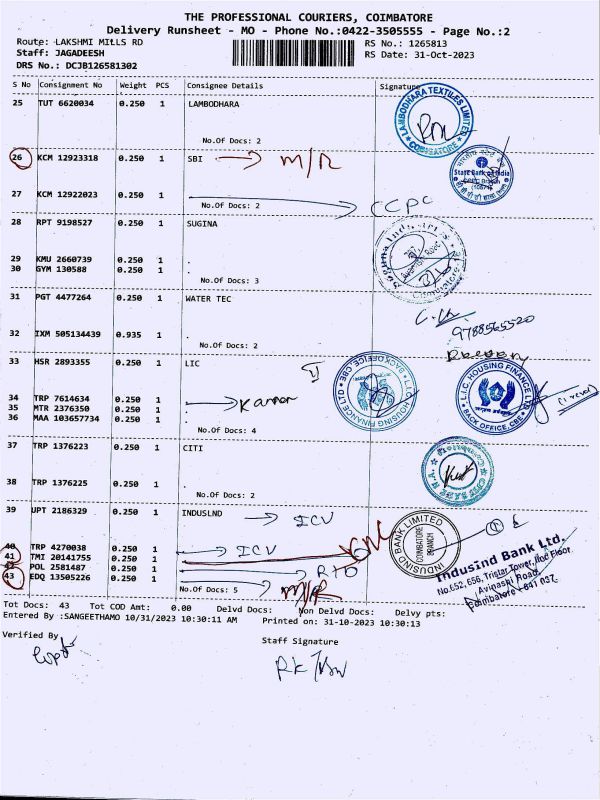 THE PROFESSIONAL COURIERS, COIMBATORE
Delivery Runsheet - MO - Phone No.:0422-3505555 - Page No.:2
Route: LAKSHMI MILLS RD
RS No.: 1265813
Staff: JAGADEESH
RS Date: 31-Oct-2023
DRS No.: DCJB126581302
S No Consignment No Weight PCS Consignee Details Signature
25 TUT 6620034 0.250 1 LAMBODHARA
LAMBODHARA TEXTILES LIMITED COIMBATORE
No.Of Docs: 2
26 KCM 12923318 0.250 1 SBI M/R
State Bank of India
27 KCM 12922023 0.250 1
No.Of Docs: 2 CCPC
28 RPT 9198527 0.250 1 SUGINA
29 KMU 2660739 0.250 1 .
30 GYM 130588 0.250 1 .
No.Of Docs: 3
31 PGT 4477264 0.250 1 WATER TEC
9788565520
32 IXM 505134439 0.935 1 .
No.Of Docs: 2
33 HSR 2893355 0.250 1 LIC
L.I.C. HOUSING FINANCE LTD BACK OFFICE, CBE
L.I.C. HOUSING FINANCE LTD BACK OFFICE, CBE
34 TRP 7614634 0.250 1
35 MTR 2376350 0.250 1
36 MAA 103657734 0.250 1 .
No.Of Docs: 4
37 TRP 1376223 0.250 1 CITI
38 TRP 1376225 0.250 1 .
No.Of Docs: 2
39 UPT 2186329 0.250 1 INDUSLND ICU
INDUSIND BANK LIMITED COIMBATORE BRANCH
40 TRP 4270038 0.250 1 ICU
41 TMI 20141755 0.250 1
42 POL 2581487 0.250 1
43 EDQ 13505226 0.250 1
No.Of Docs: 5 M/R
Indusind Bank Ltd.
No.652, 656, Tristar Tower, Floor,
Avinashi Road,
Coimbatore - 641 037.
Tot Docs: 43 Tot COD Amt: 0.00 Delvd Docs: Non Delvd Docs: Delvy pts:
Entered By :SANGEETHAMO 10/31/2023 10:30:11 AM Printed on: 31-10-2023 10:30:13
Verified By
Staff Signature